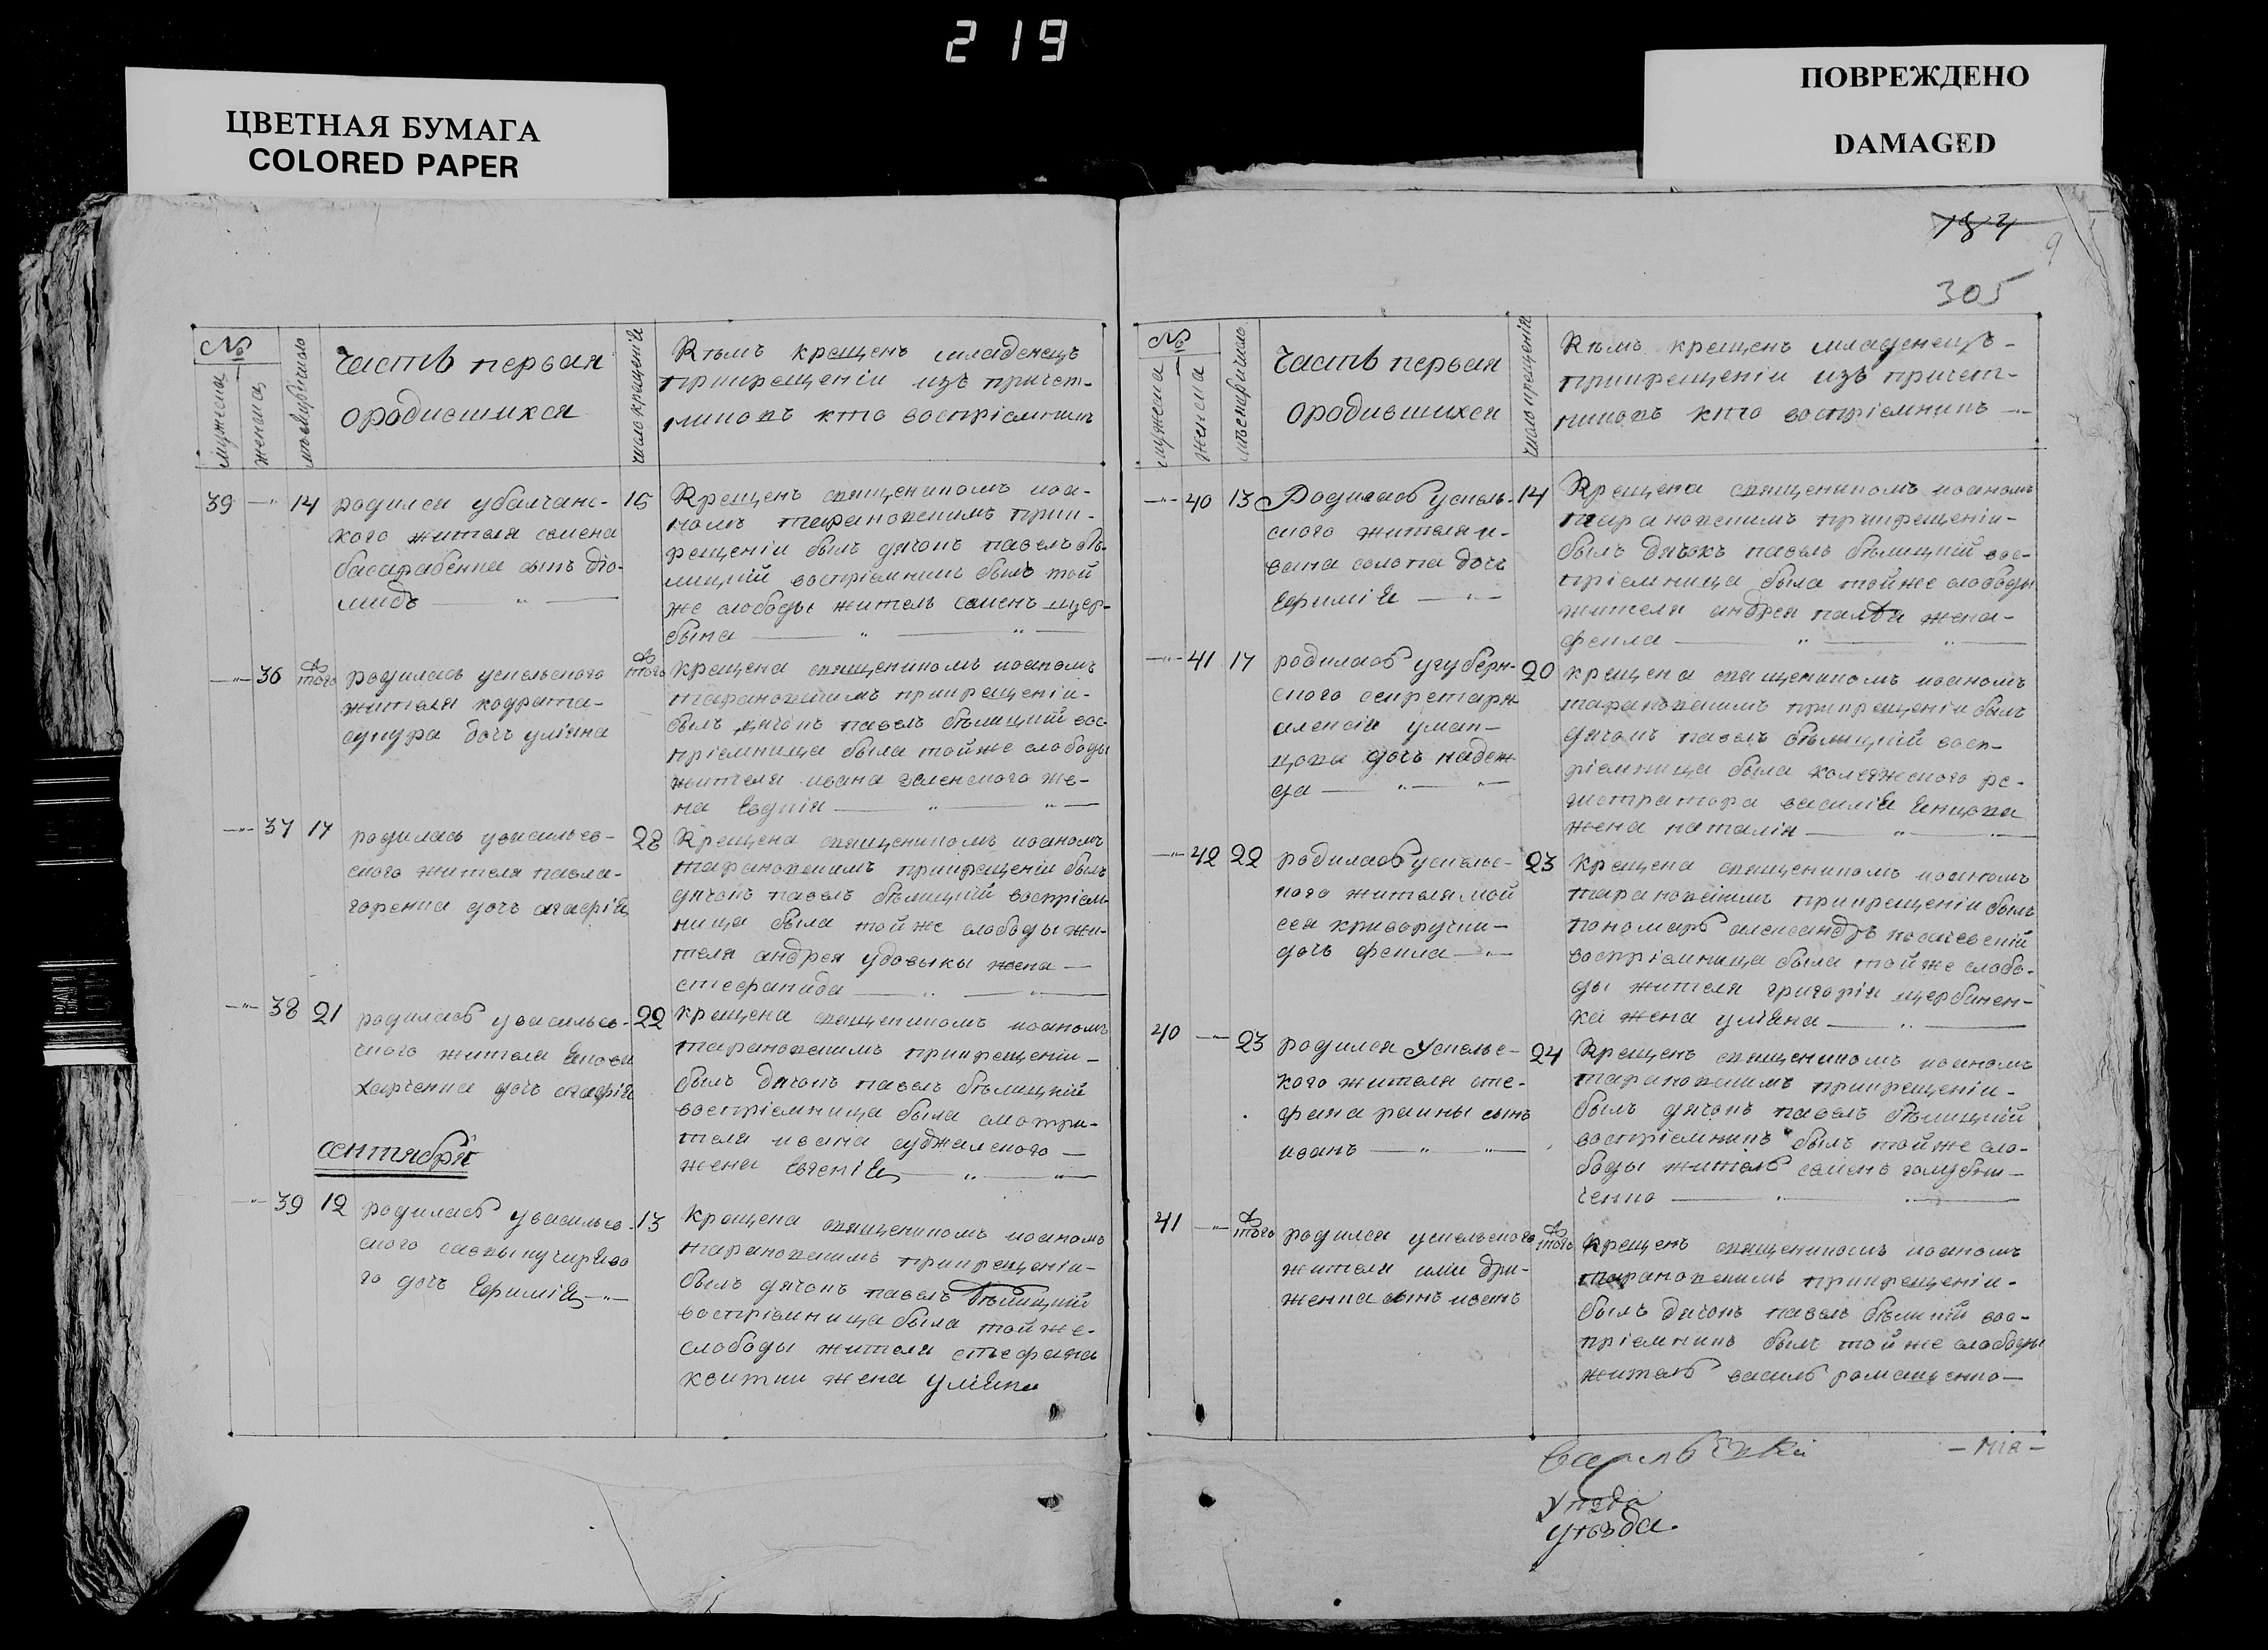 219
ЦВЕТНАЯ БУМАГА
COLORED PAPER
ПОВРЕЖДЕНО
DAMAGED
305
№
мужеска
женска
часть первая
ородившихся
число крещенія
Кѣмъ крещенъ младенецъ
прикрещеніи изъ причет-
никовъ кто воспріемникъ
39 14 родился убалчанс-
кого жителя семена
басарабенка сынъ дїо-
мидъ
15 Крещенъ священикомъ иоа-
номъ тарановскимъ прик-
рещеніи былъ дячокъ павелъ бѣ-
лицкій воспріемникъ былъ той
же слободы житель семенъ щер-
бына
36 того родилась усельского
жителя кодрата
дочь уліяна
того крещена священикомъ иоаномъ
тарановскимъ прикрещеніи
былъ дячокъ павелъ бѣлицкій вос-
пріемница была тойже слободы
жителя ивана зеленского же-
на
37 17 родилась увасильев-
ского жителя павла
горенка дочь агафія
28 Крещена священикомъ иоаномъ
тарановскимъ прикрещеніи былъ
дячокъ павелъ бѣлицкій воспріем-
ница была той же слободы жи-
теля андрея удовыки жена
стефанида
38 21 родилась увасильев-
ского жителя
харченка дочь агафія
22 крещена священикомъ иоаномъ
тарановскимъ прикрещеніи
былъ дячокъ павелъ бѣлицкій
воспріемница была смотри-
теля ивана суджанского
жена Евгенія
сентября
39 12 родилась увасильев-
ского савы
го дочь Ефимія
13 Крещена священикомъ иоаномъ
тарановскимъ прикрещеніи
былъ дячокъ павелъ бѣлицкій
воспріемница была тойже
слободы жителя стефана
квитки жена уліяна
№
мужеска
женска
часть первая
ородившихся
число крещенія
Кѣмъ крещенъ младенецъ
прикрещеніи изъ причет-
никовъ кто воспріемникъ
40 13 Родилась усель-
ского жителя и-
вана солопа дочь
Ефимія
14 Крещена священикомъ иоаномъ
тарановскимъ прикрещеніи
былъ дячокъ павелъ бѣлицкій вос-
пріемница была тойже слободы
жителя андрея жена
фекла
41 17 родилась угуберн-
ского секретаря
алексія уман-
цова дочь надеж-
да
20 крещена священикомъ иоаномъ
тарановскимъ прикрещеніи былъ
дячокъ павелъ бѣлицкій восп-
ріемница была колежского ре-
гистратора василія
жена наталія
42 22 родилась усельс-
кого жителя мой
сея криворучки
дочь фекла
23 крещена священикомъ иоаномъ
тарановскимъ прикрещеніи былъ
пономарь александръ
воспріемница была тойже слобо-
ды жителя григорія щербинен-
ка жена уліяна
40 23 родился Усельс-
кого жителя сте-
фана раины сынъ
иванъ
24 Крещенъ священикомъ иоаномъ
тарановскимъ прикрещеніи
былъ дячокъ павелъ бѣлицкій
воспріемникъ былъ тойже сло-
боды житель семенъ голубни-
ченко
41 того родился усельского
жителя сынъ
того Крещенъ священикомъ иоаномъ
тарановскимъ прикрещеніи
былъ дячокъ павелъ вос-
пріемникъ былъ тойже слободы
житель василь ромащенко
уѣзда